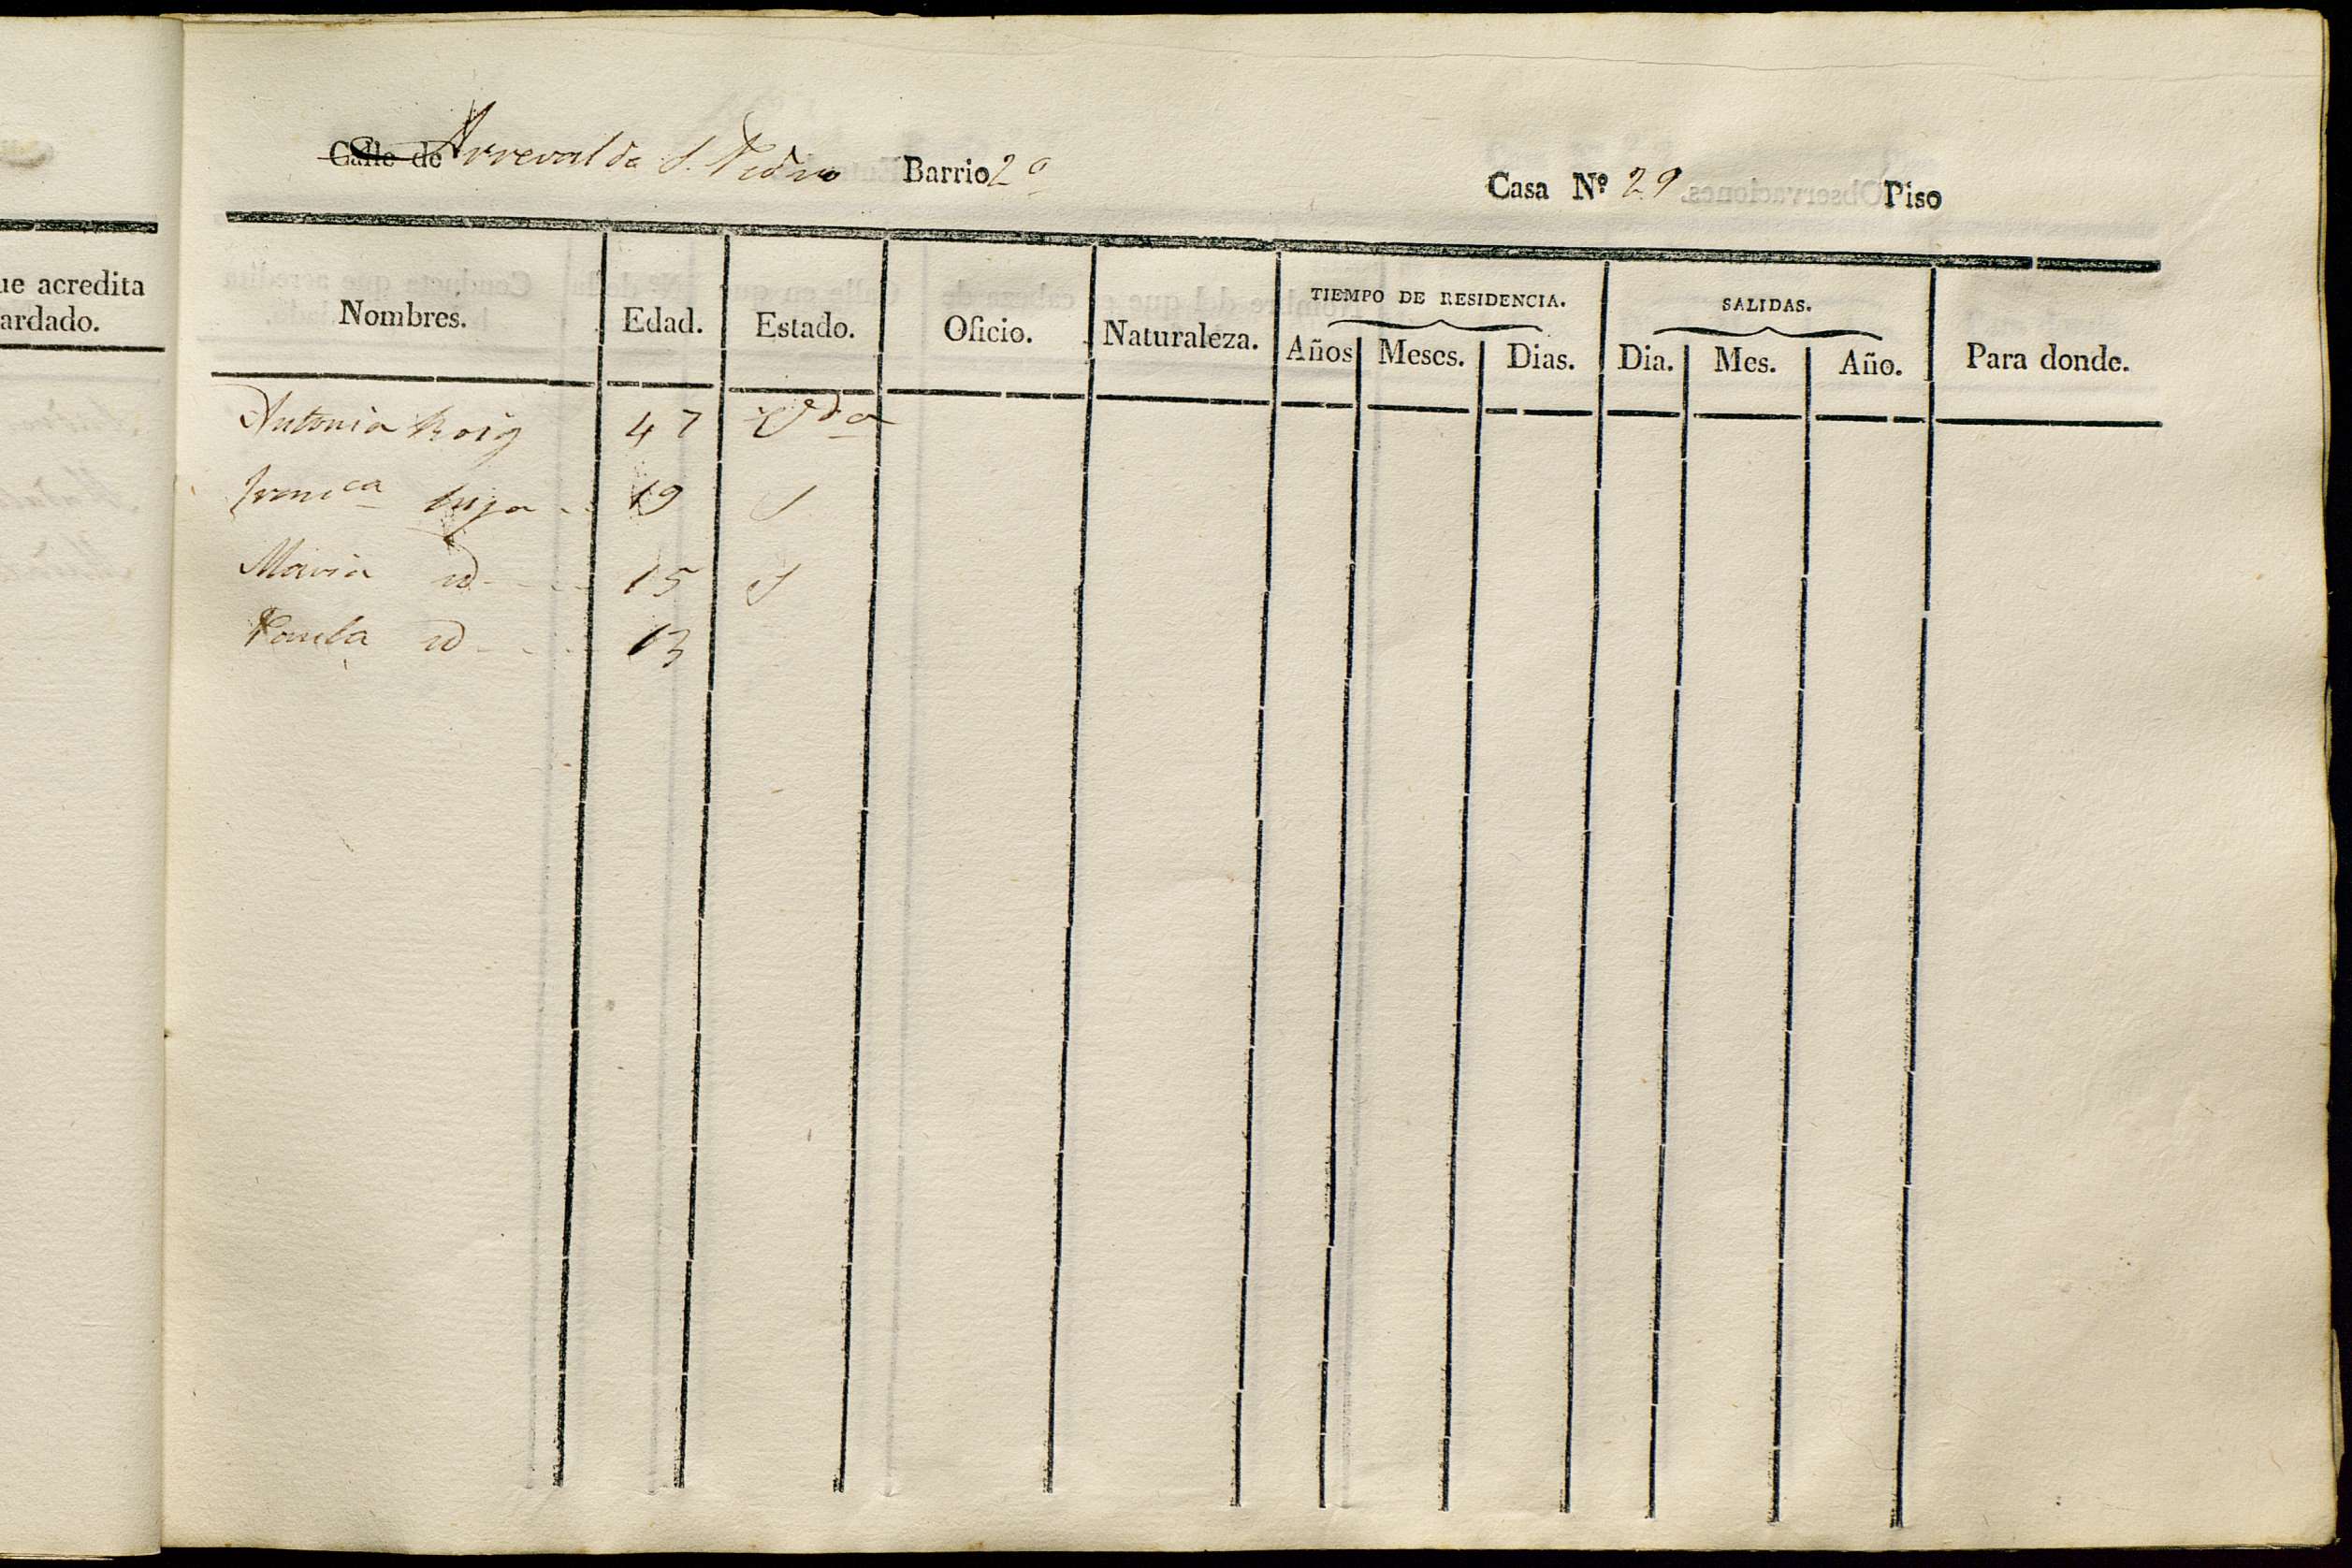 ue acredita
ardado.
Calle de Arreval de S. Pedro Barrio 2º Casa Nº 29 Piso
Nombres. Edad. Estado. Oficio. Naturaleza. TIEMPO DE RESIDENCIA. SALIDAS. Para donde.
Años Meses. Dias. Dia. Mes. Año.
Antonia Roig 47 Vda
Franca hija 19 S
Maria id 15 S
Paula id 13